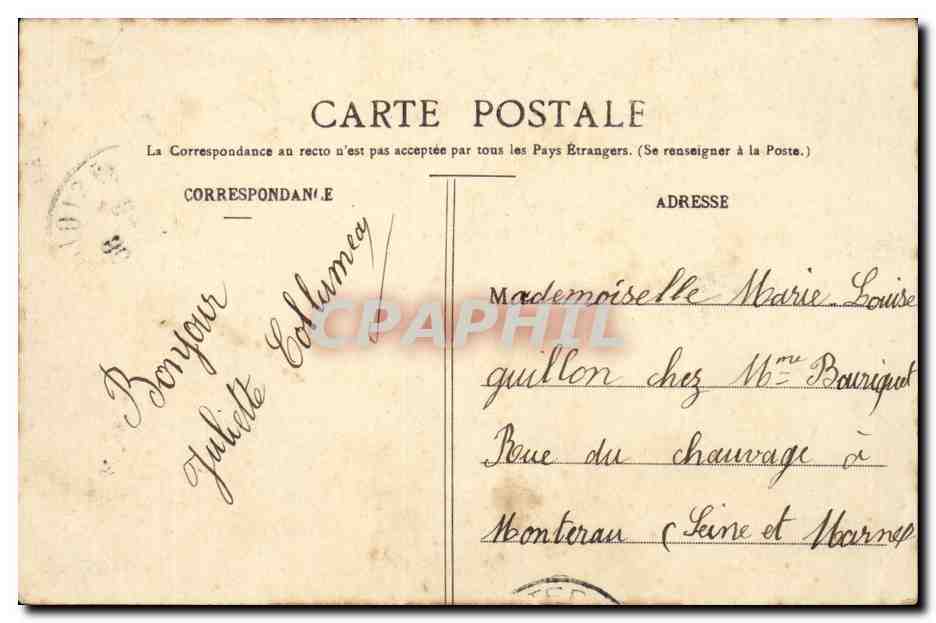 CARTE POSTALE
La Correspondance au recto n'est pas acceptée par tous les Pays Étrangers. (Se renseigner à la Poste.)
CORRESPONDANCE
Bonjour
Juliette
ADRESSE
Mademoiselle Marie-Louise
guillon chez Mme Bouriquet
Rue du chauvage à
Monterau (Seine et Marne)
CPAPHIL